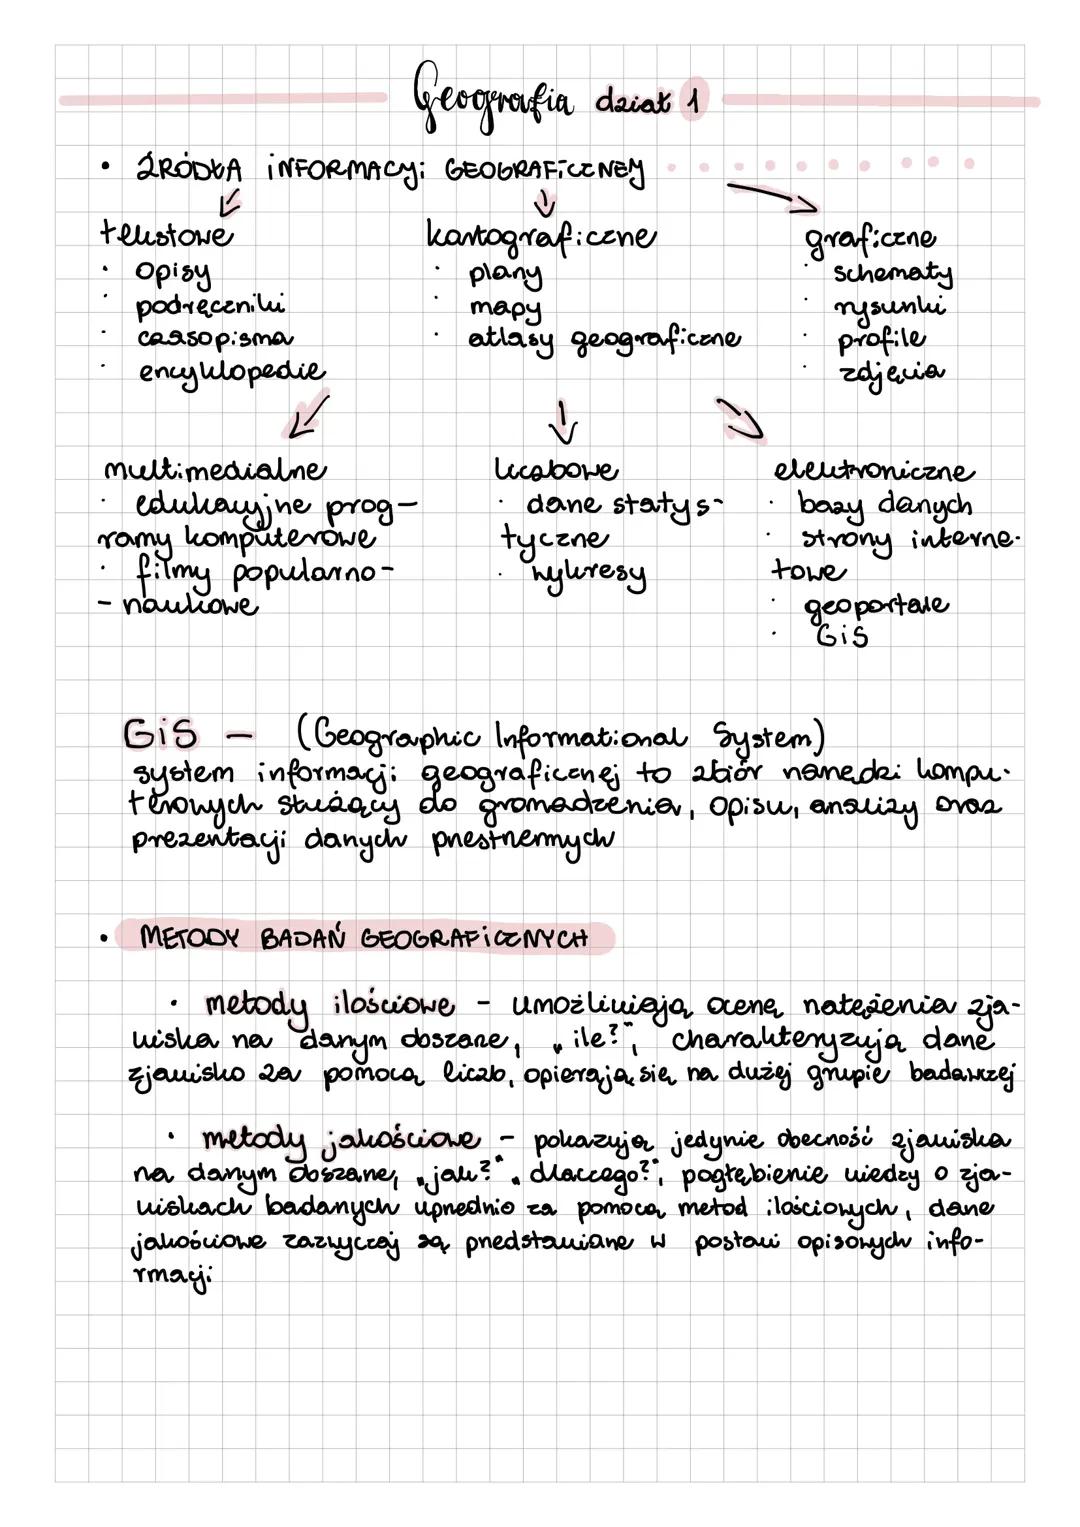 Geografia dział 1
• ŹRÓDŁA iNFORMACYJ: GEOGRAFiCZNEJ
tekstowe
• opisy
• podręczniki
• czasopisma
• encyklopedie
kartograficzne
• plany
• mapy
• atlasy geograficzne
graficzne
• schematy
• rysunki
• profile
• zdjęcia
multimedialne
• edukacyjne prog-
ramy komputerowe
• filmy popularno-
- naukowe
liczbowe
• dane statys-
tyczne
• wykresy
elektroniczne
• bazy danych
• strony interne-
towe
• geoportale
• GiS
GiS – (Geographic Informational System)
system informacji geograficznej to zbiór narzędzi kompu-
terowych służący do gromadzenia, opisu, analizy oraz
prezentacji danych przestrzennych
• METODY BADAŃ GEOGRAFiCZNYCH
• metody ilościowe - umożliwiają ocenę natężenia zja-
wiska na danym obszarze, „ile?", charakteryzują dane
zjawisko za pomocą liczb, opierają się na dużej grupie badawczej
• metody jakościowe - pokazują jedynie obecność zjawiska
na danym obszarze, „jak?" „dlaczego?", pogłębienie wiedzy o zja-
wiskach badanych uprzednio za pomocą metod ilościowych, dane
jakościowe zazwyczaj są przedstawiane w postaci opisowych info-
rmacji